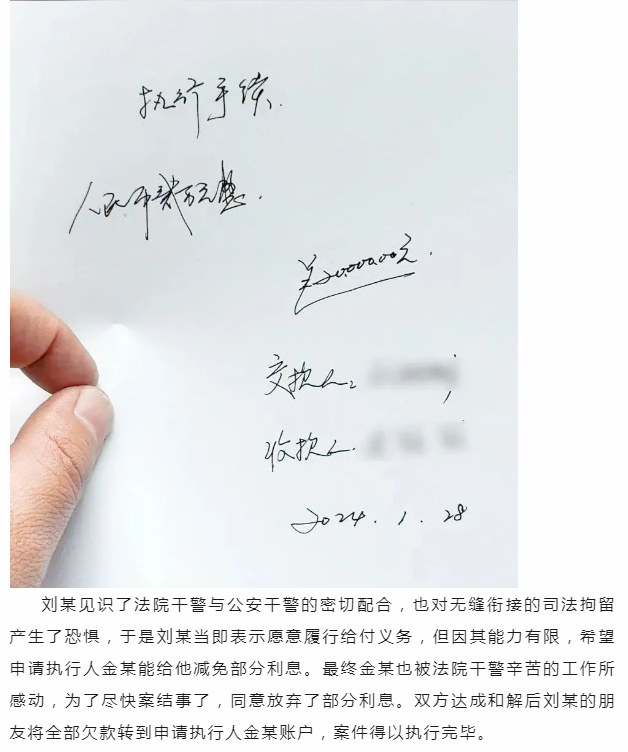 执行手续.
人民币贰万元整.
￥20000.00元.
交款人:
收款人.
2024.1.28
刘某见识了法院干警与公安干警的密切配合，也对无缝衔接的司法拘留
产生了恐惧，于是刘某当即表示愿意履行给付义务，但因其能力有限，希望
申请执行人金某能给他减免部分利息。最终金某也被法院干警辛苦的工作所
感动，为了尽快案结事了，同意放弃了部分利息。双方达成和解后刘某的朋
友将全部欠款转到申请执行人金某账户，案件得以执行完毕。